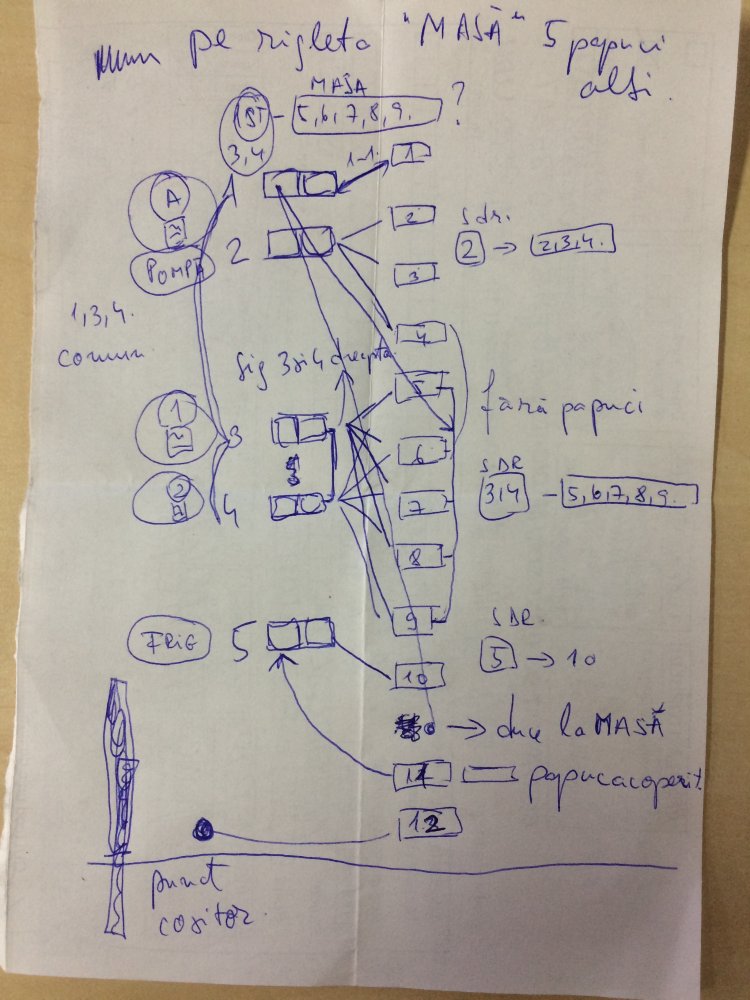 pe rigleta "MASĂ" 5 papuci
albi.
MASA
1ST - 5,6,7,8,9. ?
3,4
1-1.
1
A
1
POMPA
2
2
3
Sdr.
2 → 2,3,4.
1,3,4.
comun
4
sig 3 și 4 dreapta.
5
fără papuci
1
3
6
SDR
3,4 - 5,6,7,8,9.
2
4
7
8
9
FRIG
5
SDR.
5 → 10
10
→ duce la MASĂ
11
papuc acoperit
12
punct
cositor.